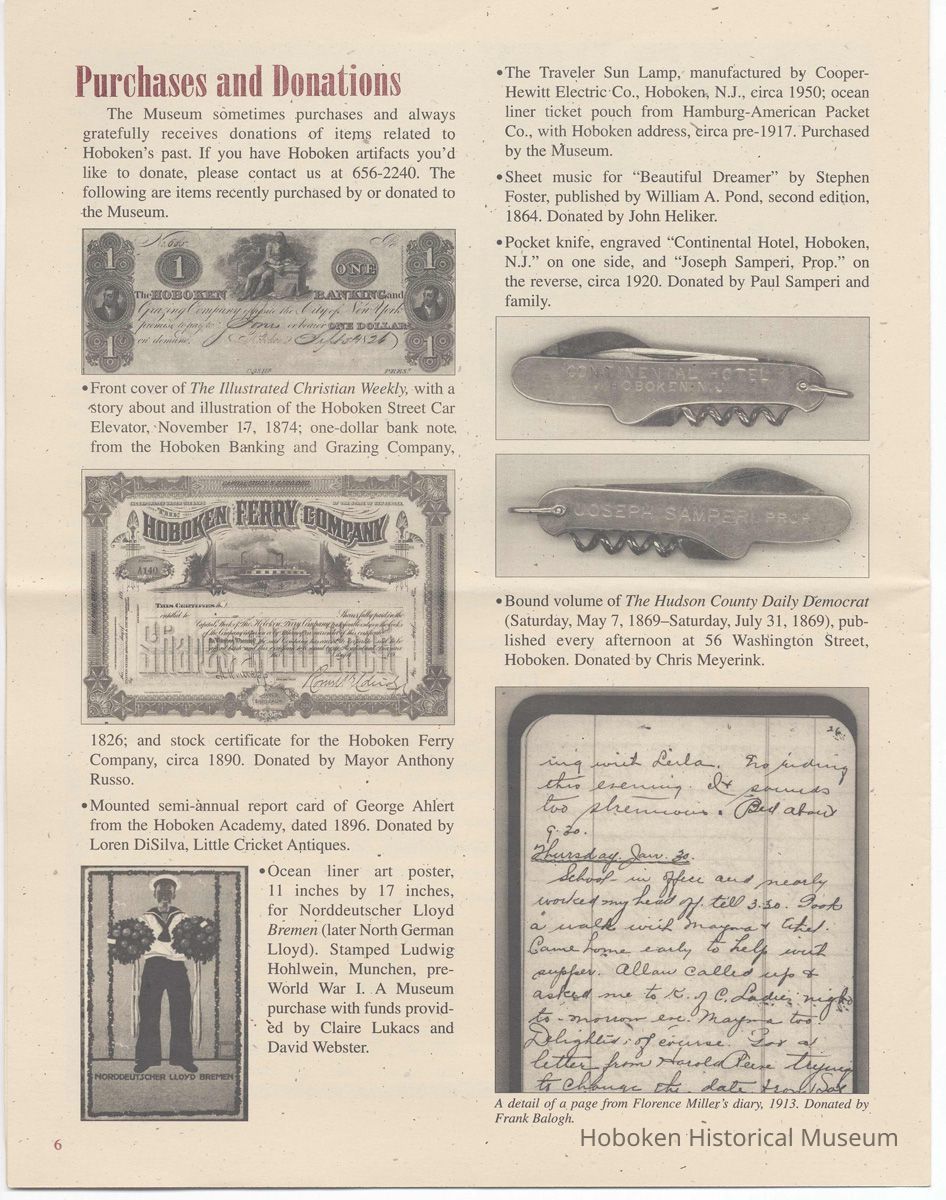 Purchases and Donations
The Museum sometimes purchases and always
gratefully receives donations of items related to
Hoboken's past. If you have Hoboken artifacts you'd
like to donate, please contact us at 656-2240. The
following are items recently purchased by or donated to
the Museum.
1
1
ONE
1
The HOBOKEN BANKING and
Grazing Company opposite the City of New York
promise to pay to or bearer ONE DOLLAR
on demand.
1
1
•Front cover of The Illustrated Christian Weekly, with a
story about and illustration of the Hoboken Street Car
Elevator, November 17, 1874; one-dollar bank note
from the Hoboken Banking and Grazing Company,
THE
HOBOKEN FERRY COMPANY
A140
THIS CERTIFIES
1826; and stock certificate for the Hoboken Ferry
Company, circa 1890. Donated by Mayor Anthony
Russo.
•Mounted semi-annual report card of George Ahlert
from the Hoboken Academy, dated 1896. Donated by
Loren DiSilva, Little Cricket Antiques.
NORDDEUTSCHER LLOYD BREMEN
•Ocean liner art poster,
11 inches by 17 inches,
for Norddeutscher Lloyd
Bremen (later North German
Lloyd). Stamped Ludwig
Hohlwein, Munchen, pre-
World War I. A Museum
purchase with funds provid-
ed by Claire Lukacs and
David Webster.
•The Traveler Sun Lamp, manufactured by Cooper-
Hewitt Electric Co., Hoboken, N.J., circa 1950; ocean
liner ticket pouch from Hamburg-American Packet
Co., with Hoboken address, circa pre-1917. Purchased
by the Museum.
•Sheet music for "Beautiful Dreamer" by Stephen
Foster, published by William A. Pond, second edition,
1864. Donated by John Heliker.
•Pocket knife, engraved "Continental Hotel, Hoboken,
N.J." on one side, and "Joseph Samperi, Prop." on
the reverse, circa 1920. Donated by Paul Samperi and
family.
CONTINENTAL HOTEL
HOBOKEN N.J.
JOSEPH SAMPERI PROP.
•Bound volume of The Hudson County Daily Democrat
(Saturday, May 7, 1869–Saturday, July 31, 1869), pub-
lished every afternoon at 56 Washington Street,
Hoboken. Donated by Chris Meyerink.
26
ing with Leila. No riding
this evening. It sounds
too strenuous. Bed about
9.30.
Thursday. Jan. 30.
School - in office and nearly
worked my head off till 3.30. Took
a walk with Mayma &
Came home early to help with
supper. Allan called up &
asked me to K. of C. Ladies night
to-morrow eve. Mayma too.
Delighted, of course. Got a
letter from Harold trying
to change the date from
A detail of a page from Florence Miller's diary, 1913. Donated by
Frank Balogh.
Hoboken Historical Museum
6